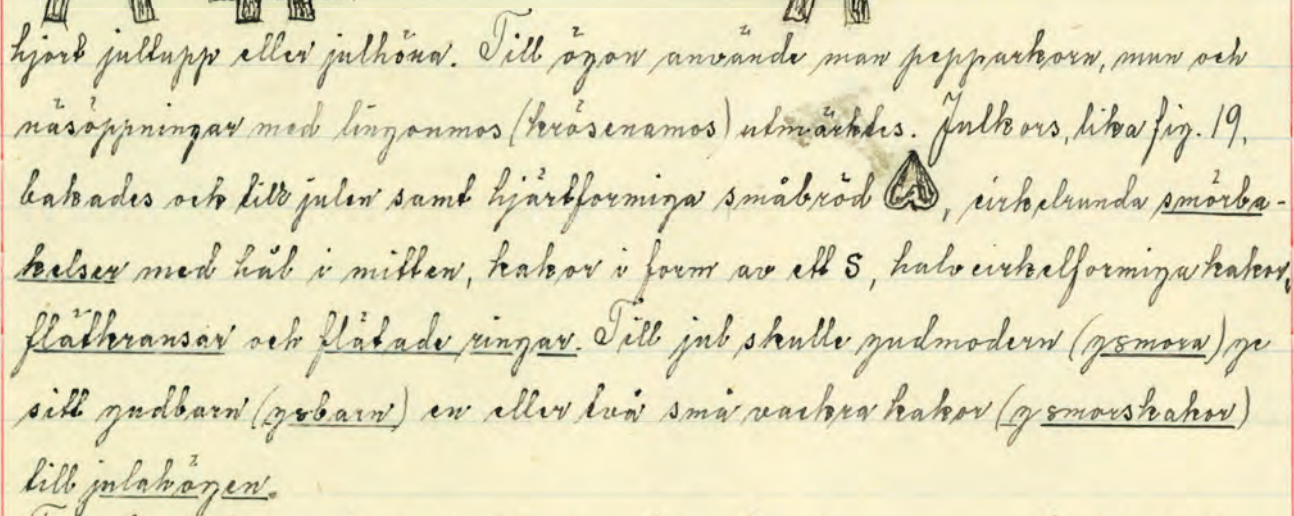 hjort jultupp eller julhöna. Till ögon använde man pepparkorn, mun och
näsöppningar med lingonmos (krösenamos) utmärktes. Julkors, lika fig. 19,
bakades och till julen samt hjärtformiga småbröd , cirkelrunda smörba-
kelser med hål i mitten, kakor i form av ett S, halvcirkelformiga kakor,
flätkransar och flätade ringar. Till jul skulle gudmodern (gsmora) ge
sitt gudbarn (gsbarn) en eller två små vackra kakor (gsmorskakor)
till julahögen.